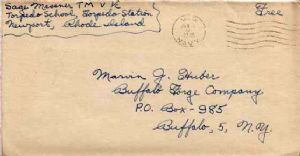 Sage Messner T M V R
Torpedo School, Torpedo Station
Newport, Rhode Island
Free
Marvin J. Huber
Buffalo Forge Company
P.O. Box - 985
Buffalo, 5, N.Y.